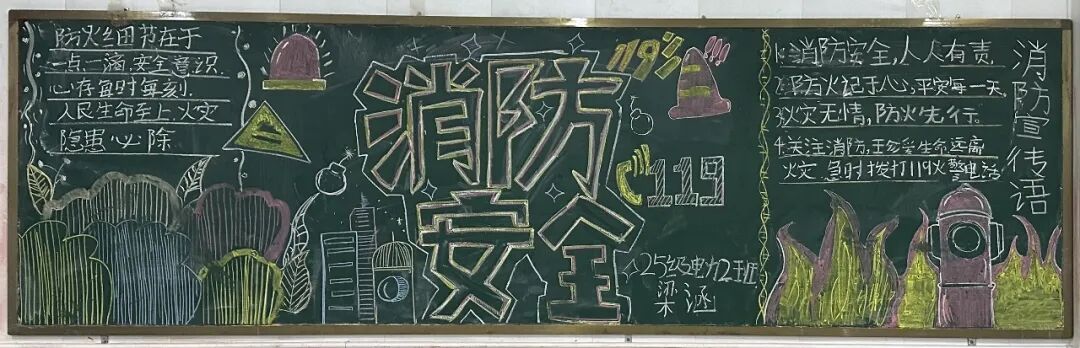 防火细节在于
一点一滴,安全意识
心存每时每刻.
人民生命至上,火灾
隐患必除
消防
安全
119
119
25级电力2班
梁涵
1.消防安全,人人有责,
2.防火记于心,平安每一天,
3.火灾无情,防火先行.
4.关注消防,珍爱生命,远离
火灾,急时拨打119火警电话
消防宣传语